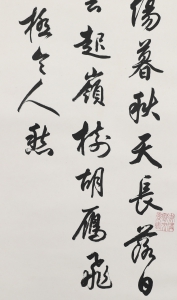 傷暮秋天長落日
起嶺樹胡鴈飛
極令人愁